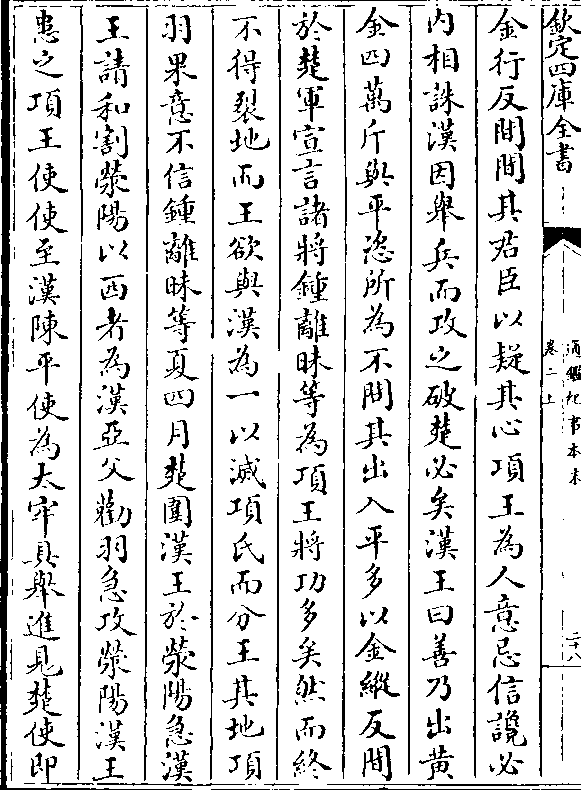 欽定四庫全書
通鑑紀事本末
卷二上
二十八
金行反間間其君臣以疑其心項王為人意忌信讒必
内相誅漢因舉兵而攻之破楚必矣漢王曰善乃出黄
金四萬斤與平恣所為不問其出入平多以金縱反間
於楚軍宣言諸將鍾離昧等為項王將功多矣然而終
不得裂地而王欲與漢為一以滅項氏而分王其地項
羽果意不信鍾離昧等夏四月楚圍漢王於滎陽急漢
王請和割滎陽以西者為漢亞父勸羽急攻滎陽漢王
患之項王使使至漢陳平使為太牢具舉進見楚使即